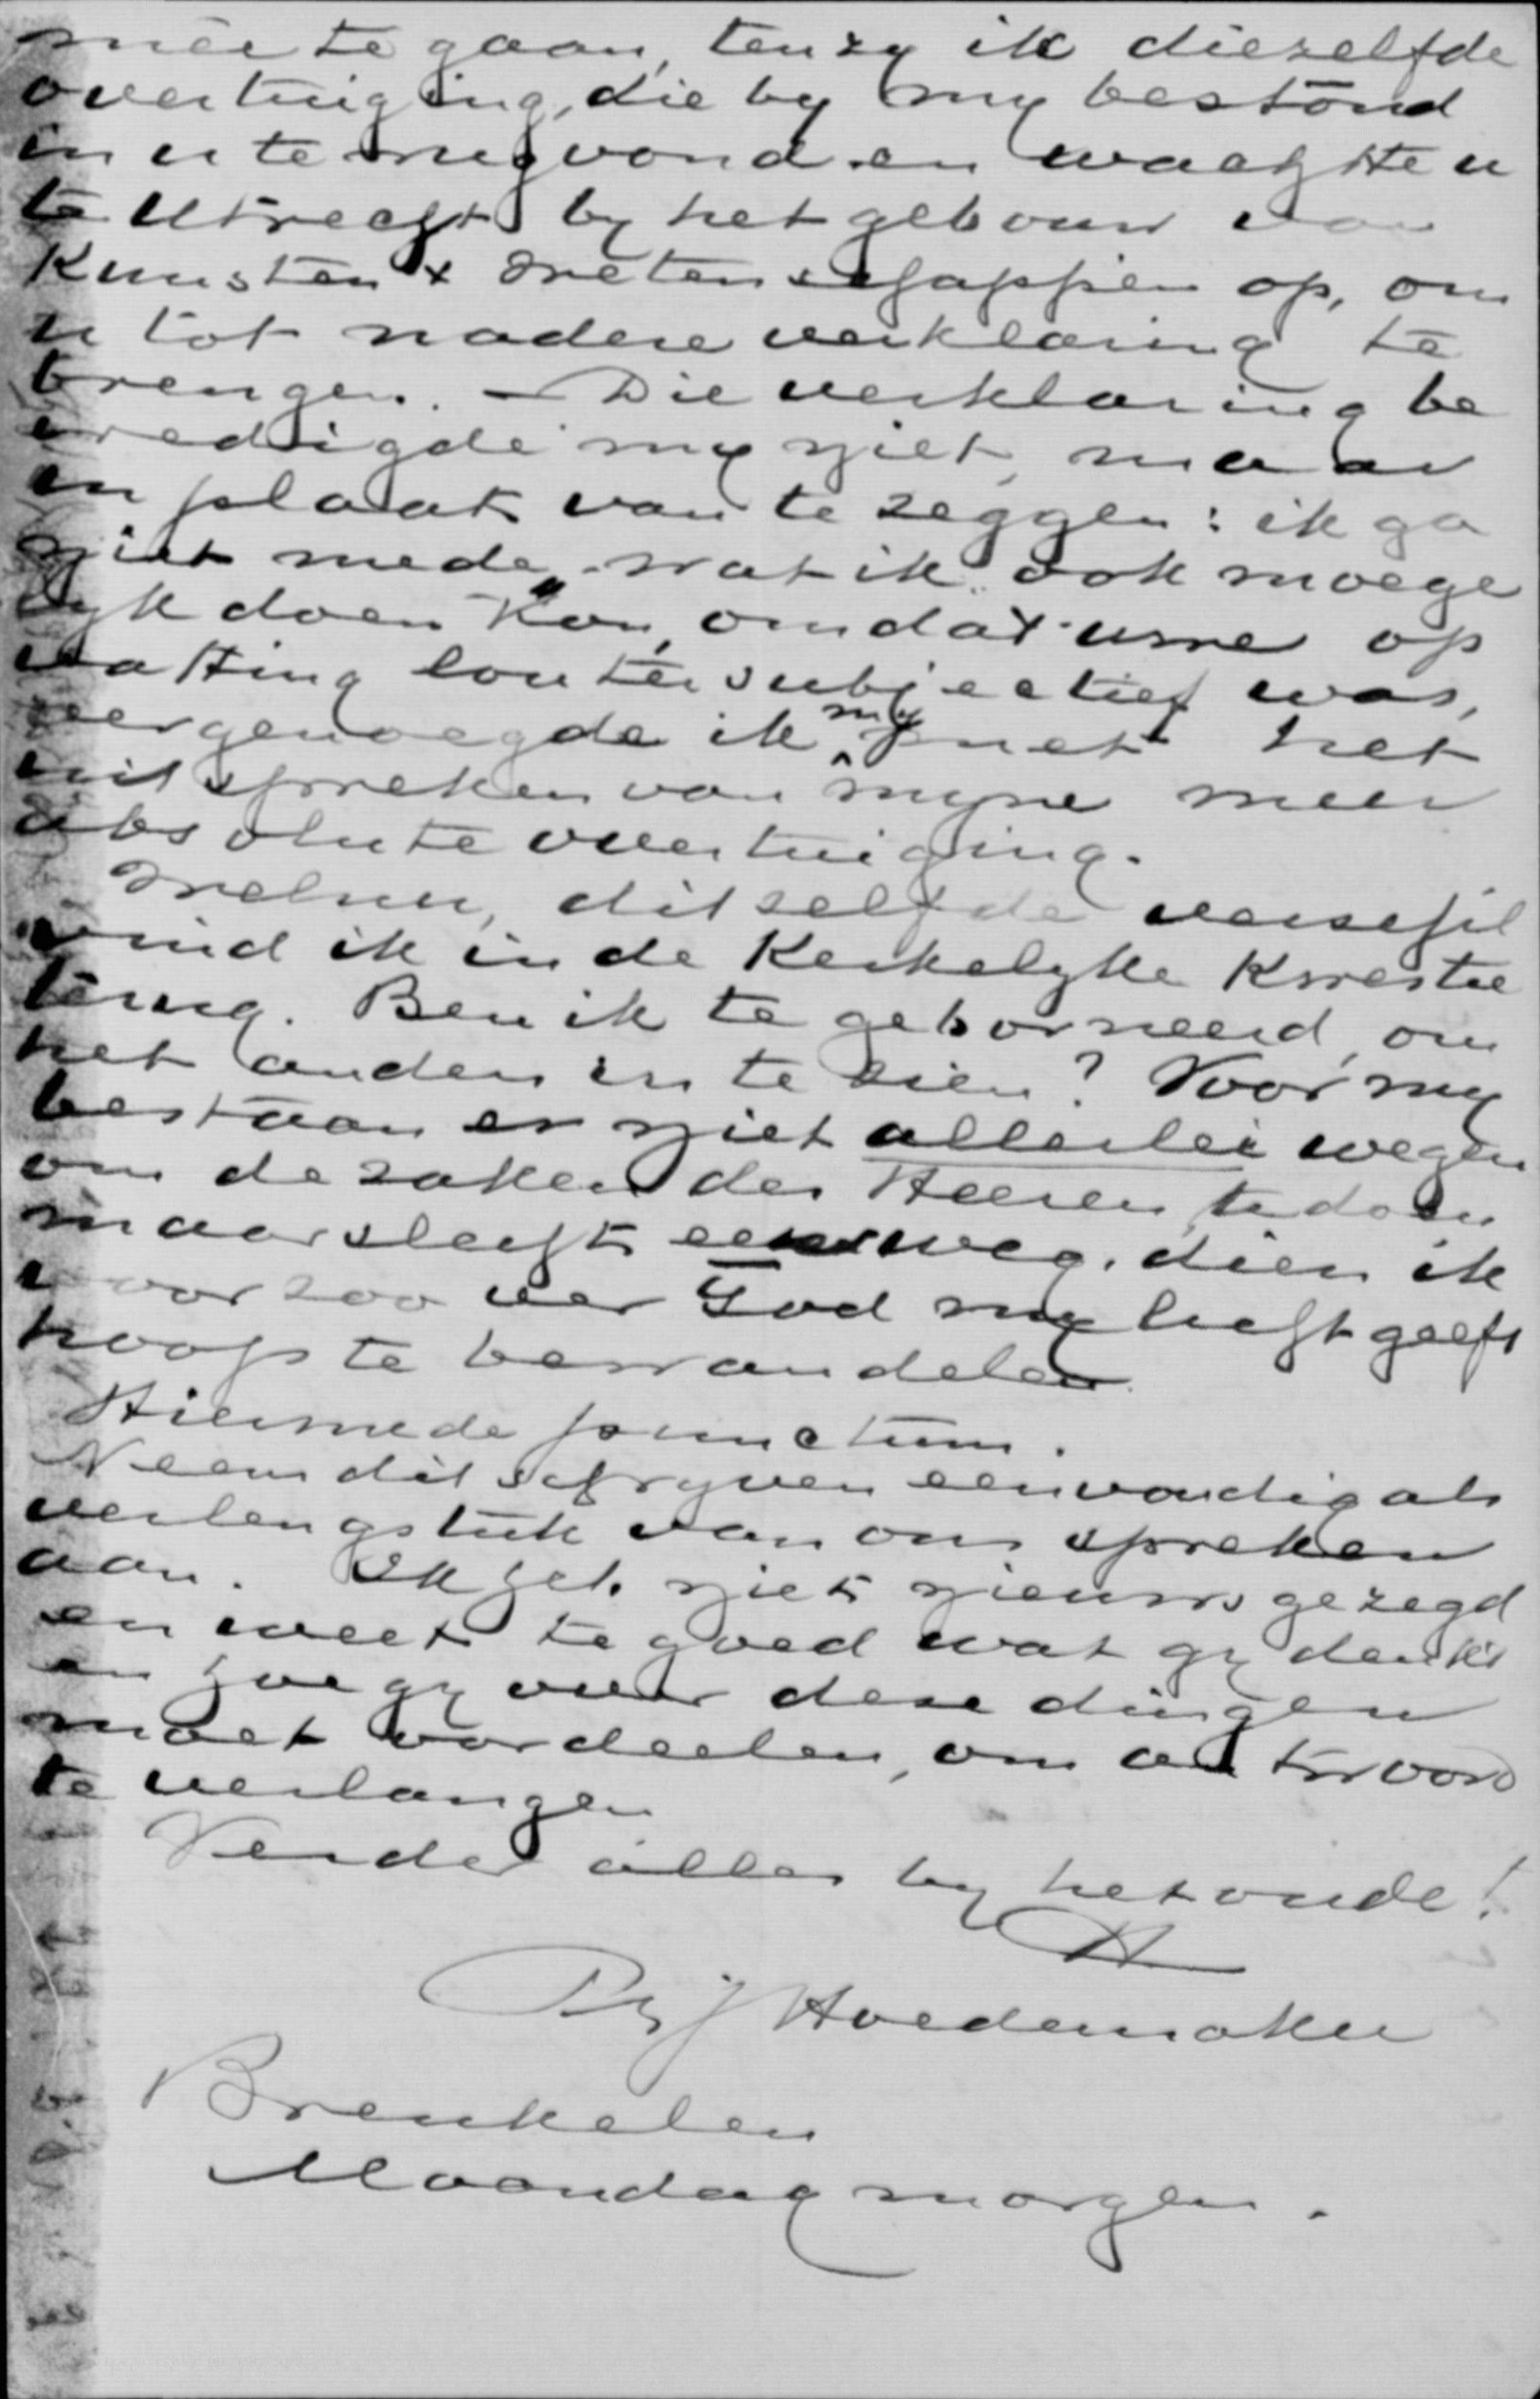 meê te gaan, tenzy ik diezelfde
overtuiging, die by my bestond
in u terugvond en wachtte u
te Utrecht by het gebouw van
Kunsten & Wetenschappen op, om
u tot nadere verklaring te
brengen. – Die verklaring be
vredigde my niet, maar
in plaats van te zeggen: ik ga
niet mede, wat ik ook moege
lyk doen kon, omdat uwe op
vatting louter subjectief was,
vergenoegde ik my met het
uitspreken van myne meer
absolute overtuiging.
Welnu, ditzelfde verschil
vind ik in de Kerkelyke Kwestie
terug. Ben ik te geborneerd, om
het anders in te zien? Voor my
bestaan er niet allerlei wegen
om de zaken des Heeren te doen
maar slechts een weg, dien ik
voor zoo ver God my licht geeft
hoop te bewandelen.
Hiermede punctum.
Neem dit schryven eenvoudig als
verlengstuk van ons spreken
aan. Ik heb niets nieuws gezegd
en weet te goed wat gy denkt
en hoe gy over deze dingen
moet oordeelen, om antwoord
te verlangen
Verder alles by het oude!
tt
Ph J Hoedemaker
Breukelen
Maandag morgen.